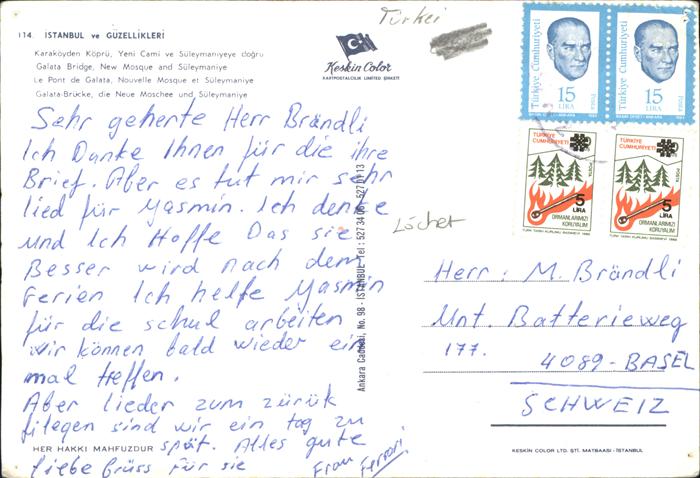 114. İSTANBUL ve GÜZELLİKLERİ
Karaköyden Köprü, Yeni Cami ve Süleymaniyeye doğru
Galata Bridge, New Mosque and Süleymaniye
Le Pont de Galata, Nouvelle Mosque et Süleymaniye
Galata-Brücke, die Neue Moschee und Süleymaniye
Sehr geherte Herr Brändli
Ich Danke Ihnen für die ihre
Brief. Aber es tut mir sehr
lied für Yasmin. Ich denke
und Ich Hoffe Das sie
Besser wird nach dem
Ferien Ich helfe Yasmin
für die schul arbeiten
wir können bald wieder ein
mal treffen.
Aber lieder zum zürük
filegen sind wir ein tag zu
spät. Alles gute
liebe grüss für sie
Frau Ferrari
HER HAKKI MAHFUZDUR
Keskin Color
KARTPOSTALCILIK LIMITED ŞİRKETİ
Ankara Caddesi, No. 98 - İSTANBUL - Tel :
Türkei
Löcher
Türkiye Cumhuriyeti
15
LİRA
Posta
Türkiye Cumhuriyeti
15
LİRA
Posta
TÜRKİYE
CUMHURİYETİ
POSTA
5
LİRA
ORMANLARIMIZI
KORUYALIM
TÜRKİYE
CUMHURİYETİ
POSTA
5
LİRA
ORMANLARIMIZI
KORUYALIM
Herr: M. Brändli
Unt Batterieweg
177.
4089-BASEL
SCHWEIZ
KESKİN COLOR LTD. ŞTİ. MATBAASI - İSTANBUL